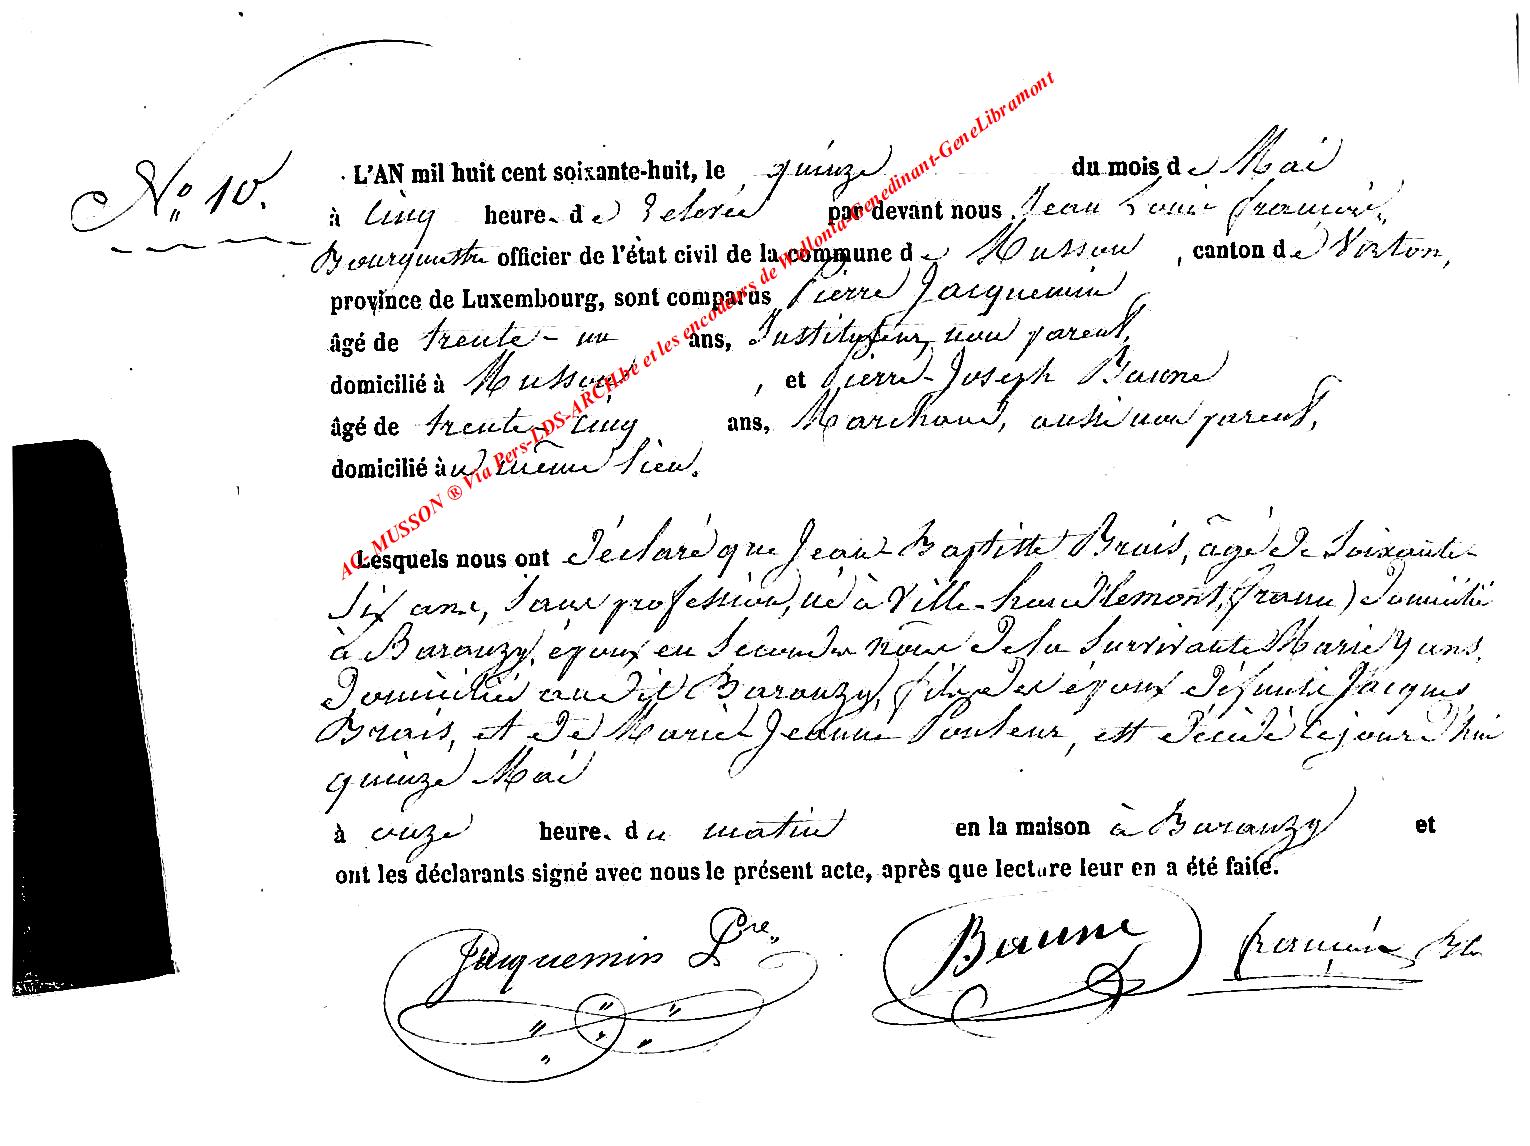 N° 10.
L'AN mil huit cent soixante-huit, le quinze du mois de Mai
à cinq heure. de relevée par devant nous Jean Louis François
officier de l'état civil de la commune de Musson, canton de Virton,
province de Luxembourg, sont comparus Pierre Jacquemin
âgé de trente-un ans, Instituteur, non parent,
domicilié à Musson, et Pierre-Joseph Baune
âgé de trente-cinq ans, Marchand, aussi non parent,
domicilié au même lieu.
Lesquels nous ont déclaré que Jean-Baptiste Brais, âgé de soixante-
six ans, sans profession, né à Ville-houdlémont, (france) domicilié
à Baranzy, époux en secondes noces de la survivante Marie Yans,
domiciliée audit Baranzy, fils des époux défunts Jacques
Brais, et de Marie-Jeanne Pouleur, est décédé cejourd'hui
quinze Mai
à onze heure. du matin en la maison à Baranzy et
ont les déclarants signé avec nous le présent acte, après que lecture leur en a été faite.
Jacquemin Pre Baune françois
AC. MUSSON ® Via Pers-LDS-ARCH.be et les encodeurs de Wallonia-Genedinant-GeneLibramont